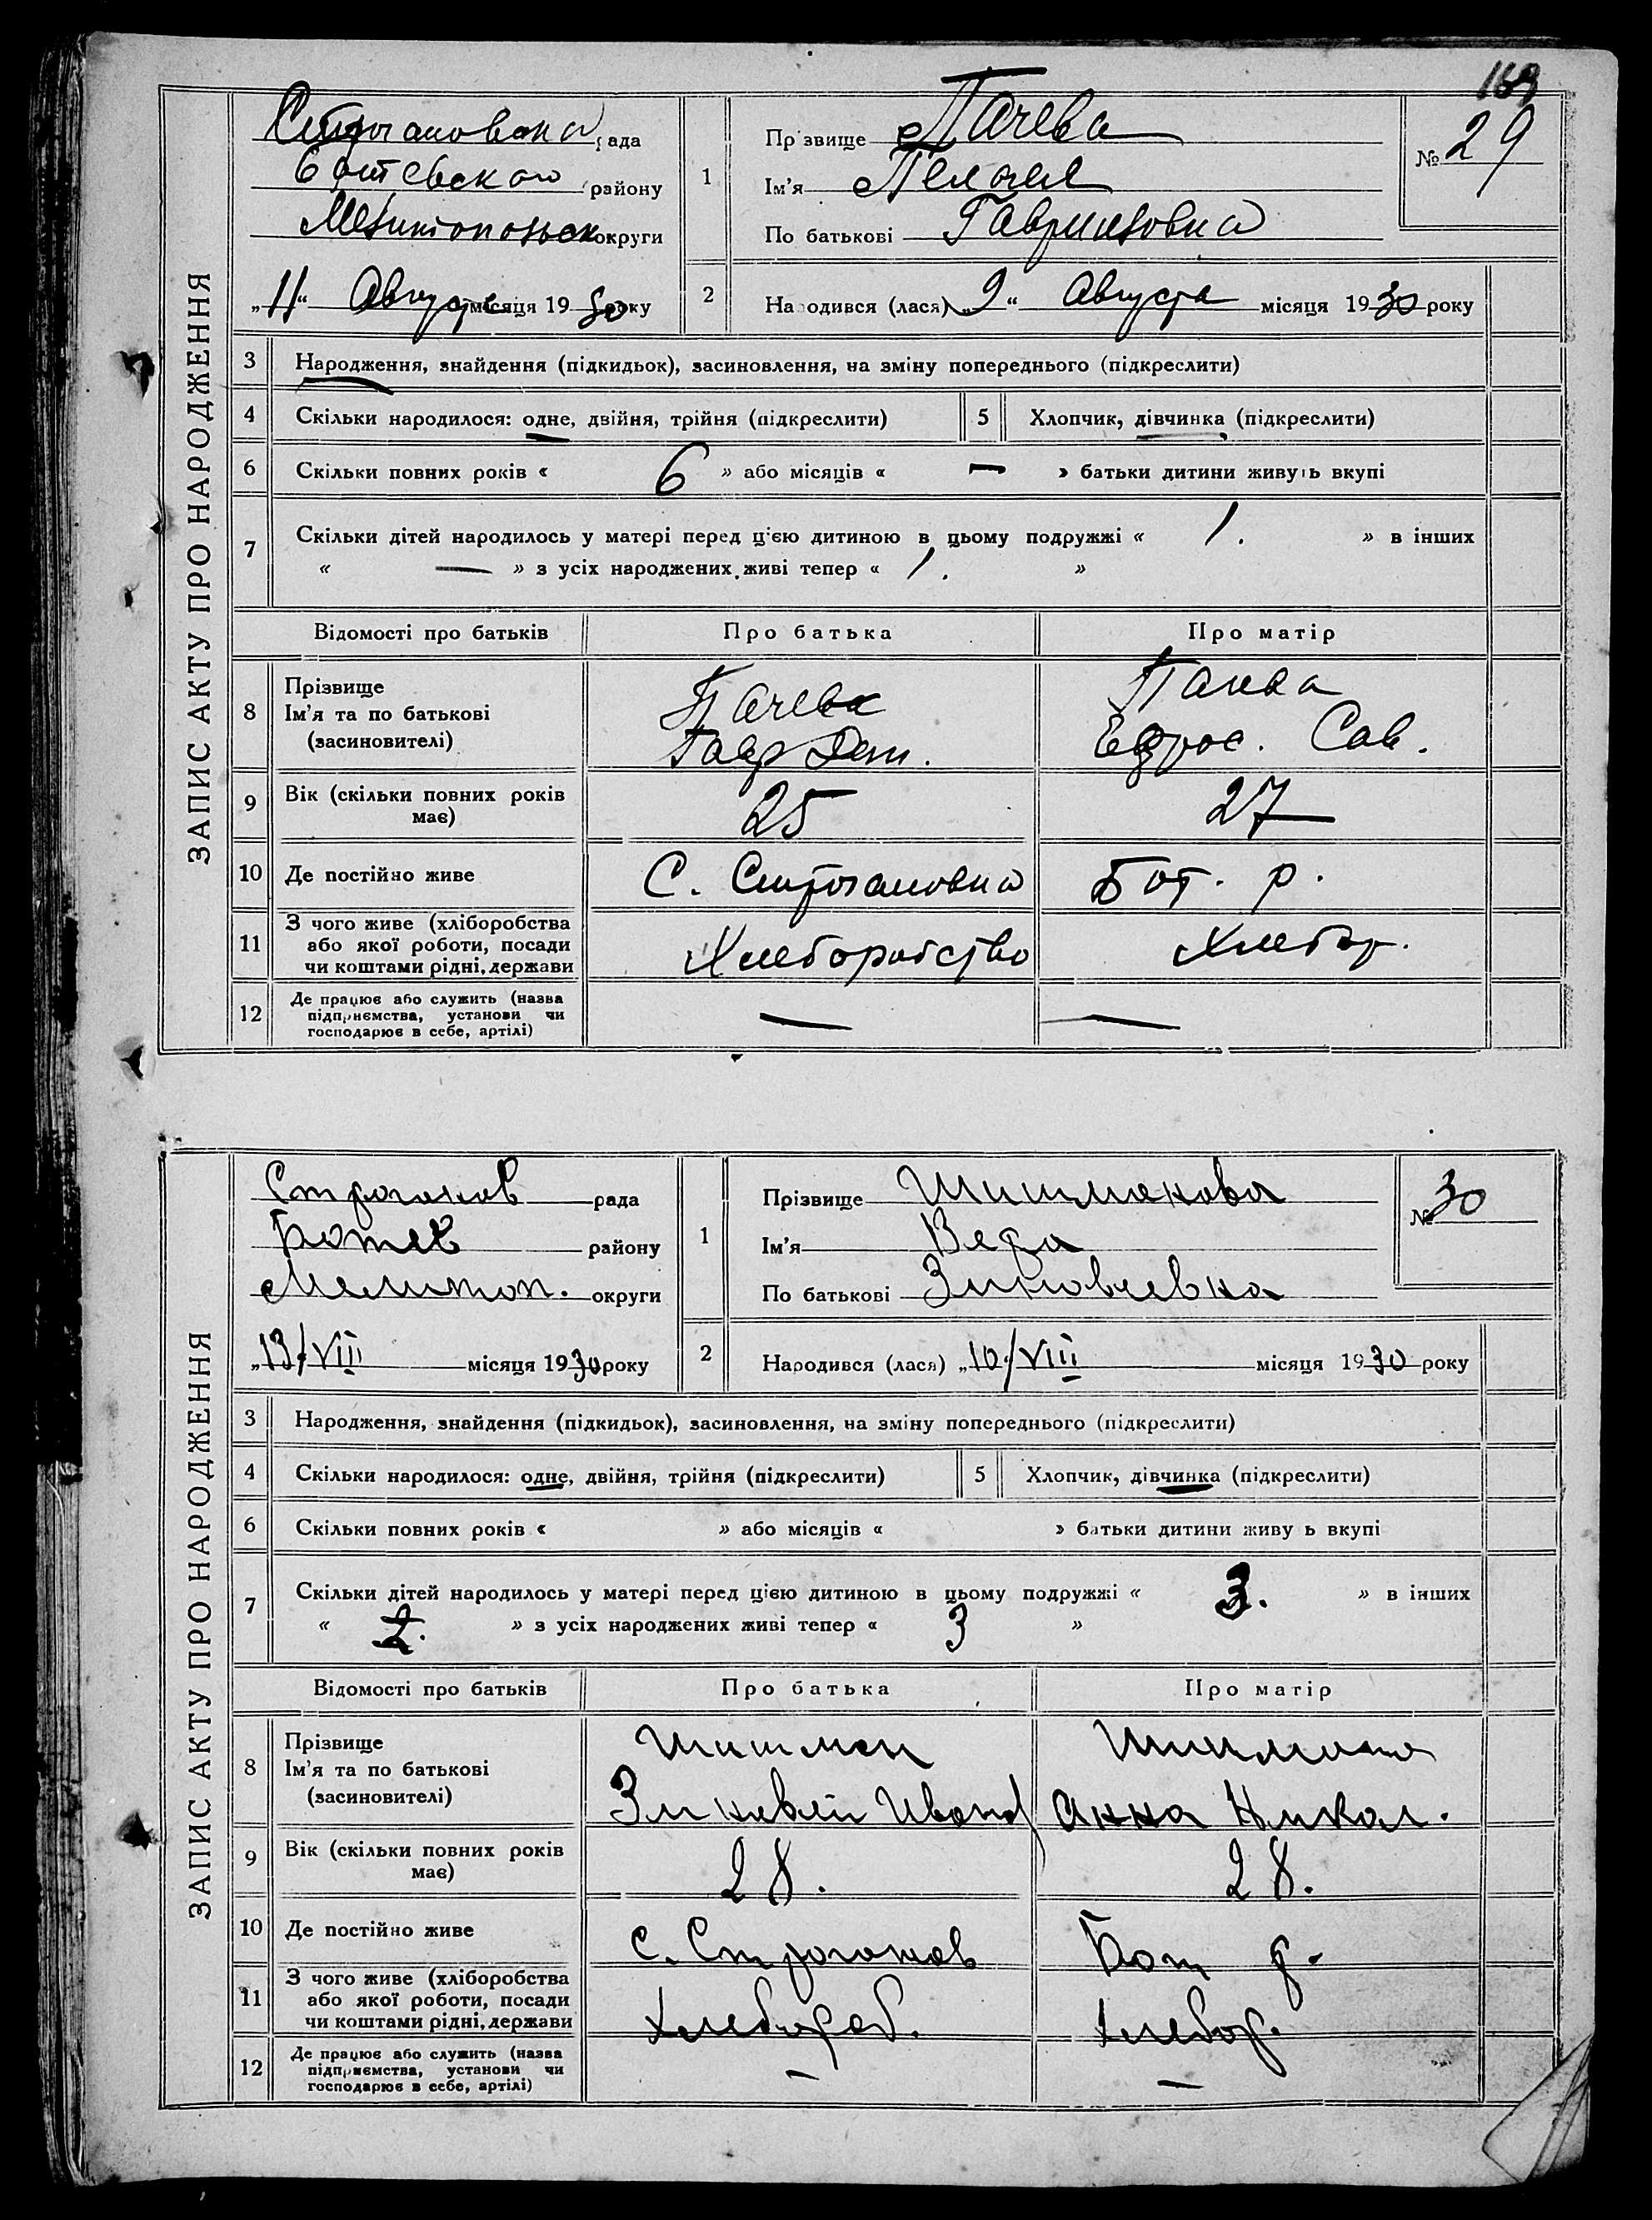 169
ЗАПИС АКТУ ПРО НАРОДЖЕННЯ
Строгановка рада
Ботевского району
Мелитопольск округи
„11“ Августа місяця 1930 року
1
Прізвище Пачева
Ім'я Пелагея
По батькові Гавриловна
№ 29
2
Народився (лася) „9“ Августа місяця 1930 року
3 Народження, знайдення (підкидьок), засиновлення, на зміну попереднього (підкреслити)
4 Скільки народилося: одне, двійня, трійня (підкреслити) 5 Хлопчик, дівчинка (підкреслити)
6 Скільки повних років « 6 » або місяців « — » батьки дитини живуть вкупі
7 Скільки дітей народилось у матері перед цією дитиною в цьому подружжі « 1. » в інших
« — » з усіх народжених живі тепер « 1. »
Відомості про батьків Про батька Про матір
8 Прізвище
Ім'я та по батькові
(засиновителі)
Пачева
Гавр
Ефрос. Сав.
9 Вік (скільки повних років має) 25 27
10 Де постійно живе С. Строгановка Бот. р.
11 З чого живе (хліборобства
або якої роботи, посади
чи коштами рідні, держави
Хлеборобство Хлебор.
12 Де працює або служить (назва
підприємства, установи чи
господарює в себе, артілі)
— —
ЗАПИС АКТУ ПРО НАРОДЖЕННЯ
Строганов рада
Ботев району
Мелитоп. округи
„13/VIII місяця 1930 року
1
Прізвище Шишманова
Ім'я Вера
По батькові Зиновеевна
№ 30
2
Народився (лася) „10/VIII місяця 1930 року
3 Народження, знайдення (підкидьок), засиновлення, на зміну попереднього (підкреслити)
4 Скільки народилося: одне, двійня, трійня (підкреслити) 5 Хлопчик, дівчинка (підкреслити)
6 Скільки повних років « » або місяців « » батьки дитини живу ь вкупі
7 Скільки дітей народилось у матері перед цією дитиною в цьому подружжі « 3. » в інших
« 2. » з усіх народжених живі тепер « 3 »
Відомості про батьків Про батька Про матір
8 Прізвище
Ім'я та по батькові
(засиновителі)
Шишман
Зиновей Иванов Анна Никол.
9 Вік (скільки повних років має) 28. 28.
10 Де постійно живе с. Строганов Бот р.
11 З чого живе (хліборобства
або якої роботи, посади
чи коштами рідні, держави
Хлебороб. Хлебор.
12 Де працює або служить (назва
підприємства, установи чи
господарює в себе, артілі)
— —